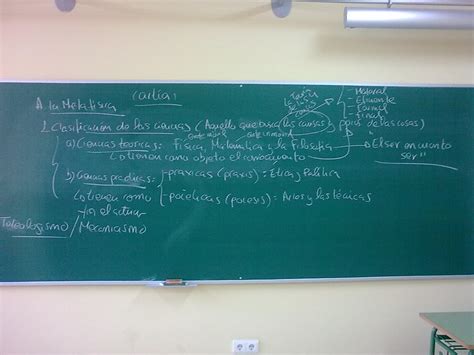 A. La Metafísica
- Material
- Eficiente
- Formal
- Final
1. Clasificación de las ciencias (Aquello que busca las causas y ppios de las cosas)
a) Ciencias teóricas: Física, Matemática y la Filosofía → El ser en cuanto
ser"
tienen como objeto el conocimiento
b) Ciencias prácticas: - práxicas (praxis) = Ética y Política
tienen como
fin el actuar
- poiéticas (poiesis) = Artes y las técnicas
Teleologismo / Mecanicismo